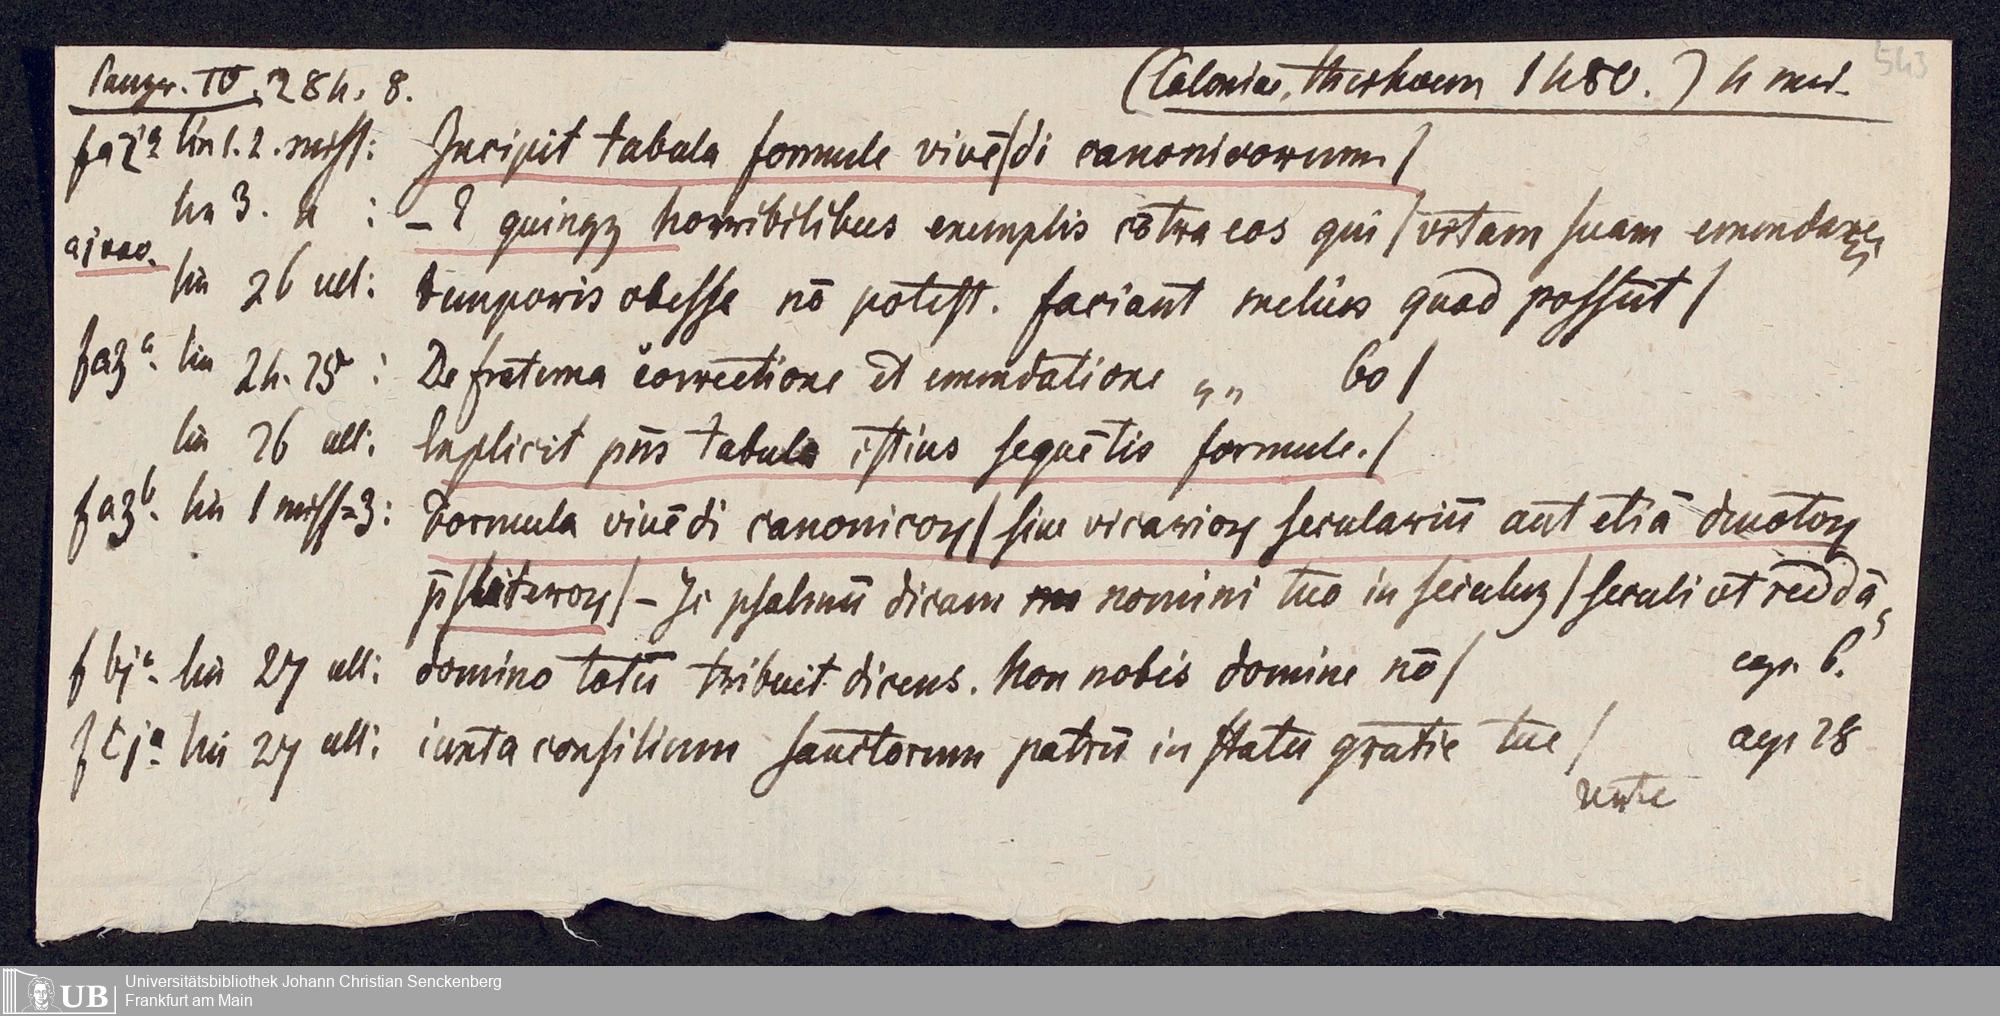 Panzer. IV. 284. 8. (Coloniae, therhoern 1480.) 4 mai. 543
f a2a lin 1. 2. miss: Incipit tabula formule viuē/di canonicorum/
lin 3. 4 : – quinqz horribilibus exemplis cōtra eos qui / vitam suam emendare
lin 26 ult: temporis obesse nō potest. faciant melius quod possūt/
f a3a. lin 24. 25 : De fraterna correctione et emendatione „ „ 60 /
lin 26 ult: Explicit pñs tabula istius sequētis formule./
f a3b. lin 1 miss–3: Formula viuēdi canonicoꝝ/ siue vicarioꝝ seculariū aut etiā deuotoꝝ
p̄sbiteroꝝ/ – Sic psalmū dicam nomini tuo in seculuz / seculi ut reddā
f bja. lin 27 ult: domino totū tribuit dicens. Non nobis domine nō/ cap. 6.
f cja. lin 27 ult: iuxta consilium sanctorum patrū in statu gratie tue / cap 28
Universitätsbibliothek Johann Christian Senckenberg
UB Frankfurt am Main